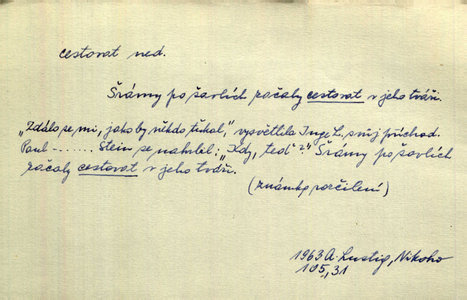 cestovat ned.
Šrámy po šavlích začaly cestovat v jeho tváři.
„Zdálo se mi, jako by někdo ťukal", vysvětlila Inge L. svůj příchod.
Paul - - - - - - - Stein se nahrbil: „Kdy, teď?" Šrámy po šavlích
začaly cestovat v jeho tváři.
(známka rozčílení)
1963 A. Lustig, Nikoho
105,31